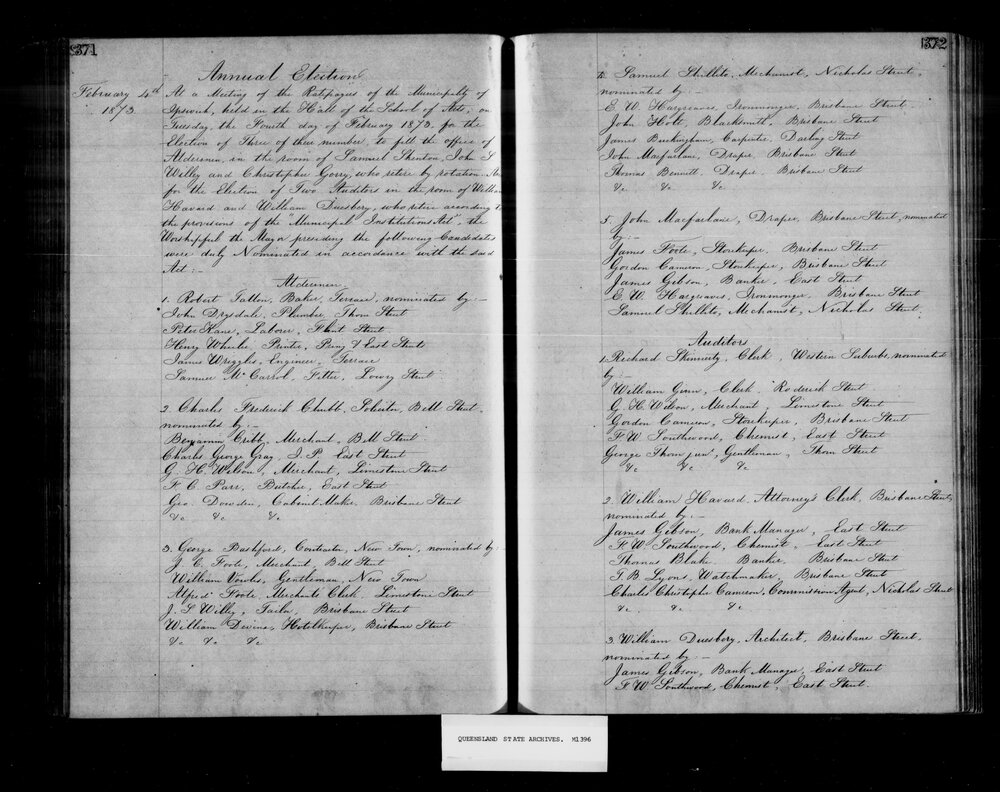 371
Annual Election
February 4th
1873
At a Meeting of the Ratepayers of the Municipality of
Ipswich, held in the Hall of the School of Arts, on
Tuesday, the Fourth day of February 1873, for the
Election of Three of their number, to fill the office of
Aldermen, in the room of Samuel Shenton, John S
Willey and Christopher Gorry, who retire by rotation. And
for the Election of Two Auditors in the room of William
Havard and William Duesbery, who retire according to
the provisions of the "Municipal Institutions Act" the
Worshipful the Mayor presiding the following Candidates
were duly Nominated in accordance with the said
Act :-
Aldermen
1. Robert Tallon, Baker, Terrace, nominated by :-
John Drysdale, Plumber, Thorn Street
Peter Kane, Laborer, Street
Henry Printer, & East Streets
James Wriggles, Engineer, Terrace
Samuel McCarrol, Fitter, Lowry Street
2. Charles Frederick Chubb, Solicitor, Bell Street,
nominated by :-
Benjamin Cribb, Merchant, Bell Street
Charles George Gray, J.P. East Street
G. H. Wilson, Merchant, Limestone Street
F. C. Parr, Butcher, East Street
Geo. Dowden, Cabinet Maker, Brisbane Street
&c &c &c
3. George Bashford, Contractor, New Town, nominated by :-
J. C. Foote, Merchant, Bell Street
William Vowles, Gentleman, New Town
Alfred Foote, Merchants Clerk, Limestone Street
J. S. Willey, Tailor, Brisbane Street
William Devine, Hotelkeeper, Brisbane Street
&c &c &c
372
4. Samuel Shillito, Mechanist, Nicholas Street,
nominated by :-
E. W. Hargreaves, Ironmonger, Brisbane Street
John Holt, Blacksmith, Brisbane Street
James Buckingham, Carpenter, Darling Street
John Macfarlane, Draper, Brisbane Street
Thomas Bennett, Draper, Brisbane Street
&c &c &c
5. John Macfarlane, Draper, Brisbane Street, nominated
by :-
James Foote, Storekeeper, Brisbane Street
Gordon Cameron, Storekeeper, Brisbane Street
James Gibson, Banker, East Street
E. W. Hargreaves, Ironmonger, Brisbane Street
Samuel Shillito, Mechanist, Nicholas Street.
Auditors
1. Richard Skinnerty, Clerk, Western Suburbs, nominated
by :-
William Clerk, Roderick Street
G. H. Wilson, Merchant, Limestone Street
Gordon Cameron, Storekeeper, Brisbane Street
F. W. Southwood, Chemist, East Street
George Thorn jun, Gentleman, Thorn Street
&c &c &c
2. William Havard, Attorney's Clerk, Brisbane Street,
nominated by :-
James Gibson, Bank Manager, East Street
F. W. Southwood, Chemist, East Street
Thomas Blake Banker, Brisbane Street
T. B. Lyons, Watchmaker, Brisbane Street
Charles Christopher Cameron, Commission Agent, Nicholas Street
&c &c &c
3. William Duesbery, Architect, Brisbane Street,
nominated by :-
James Gibson, Bank Manager, East Street
F. W. Southwood, Chemist, East Street.
QUEENSLAND STATE ARCHIVES. M1396